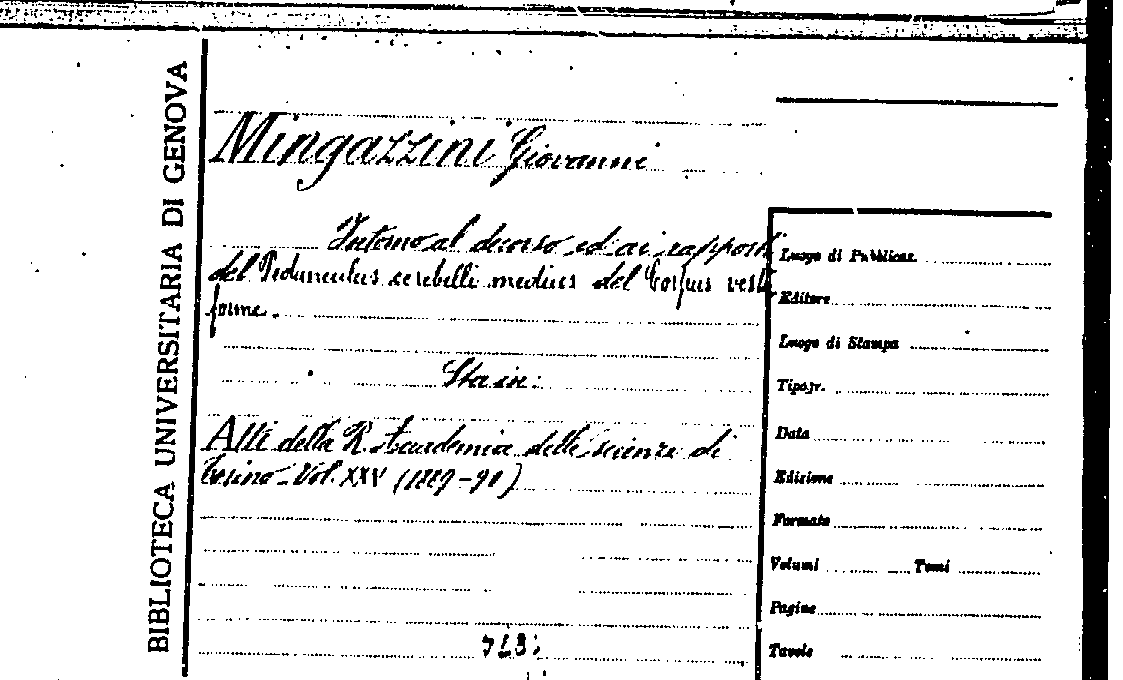 BIBLIOTECA UNIVERSITARIA DI GENOVA
Mingazzini Giovanni
Intorno al decorso ed ai rapporti
del Pedunculus cerebelli medius del Corpus resti
forme.
Sta in:
Atti della R. Accademia delle scienze di
Torino - Vol. XXV (1889-90)
Luogo di Pubblicaz.
Editore
Luogo di Stampa
Tipogr.
Data
Edizione
Formato
Volumi Tomi
Pagine
Tavole